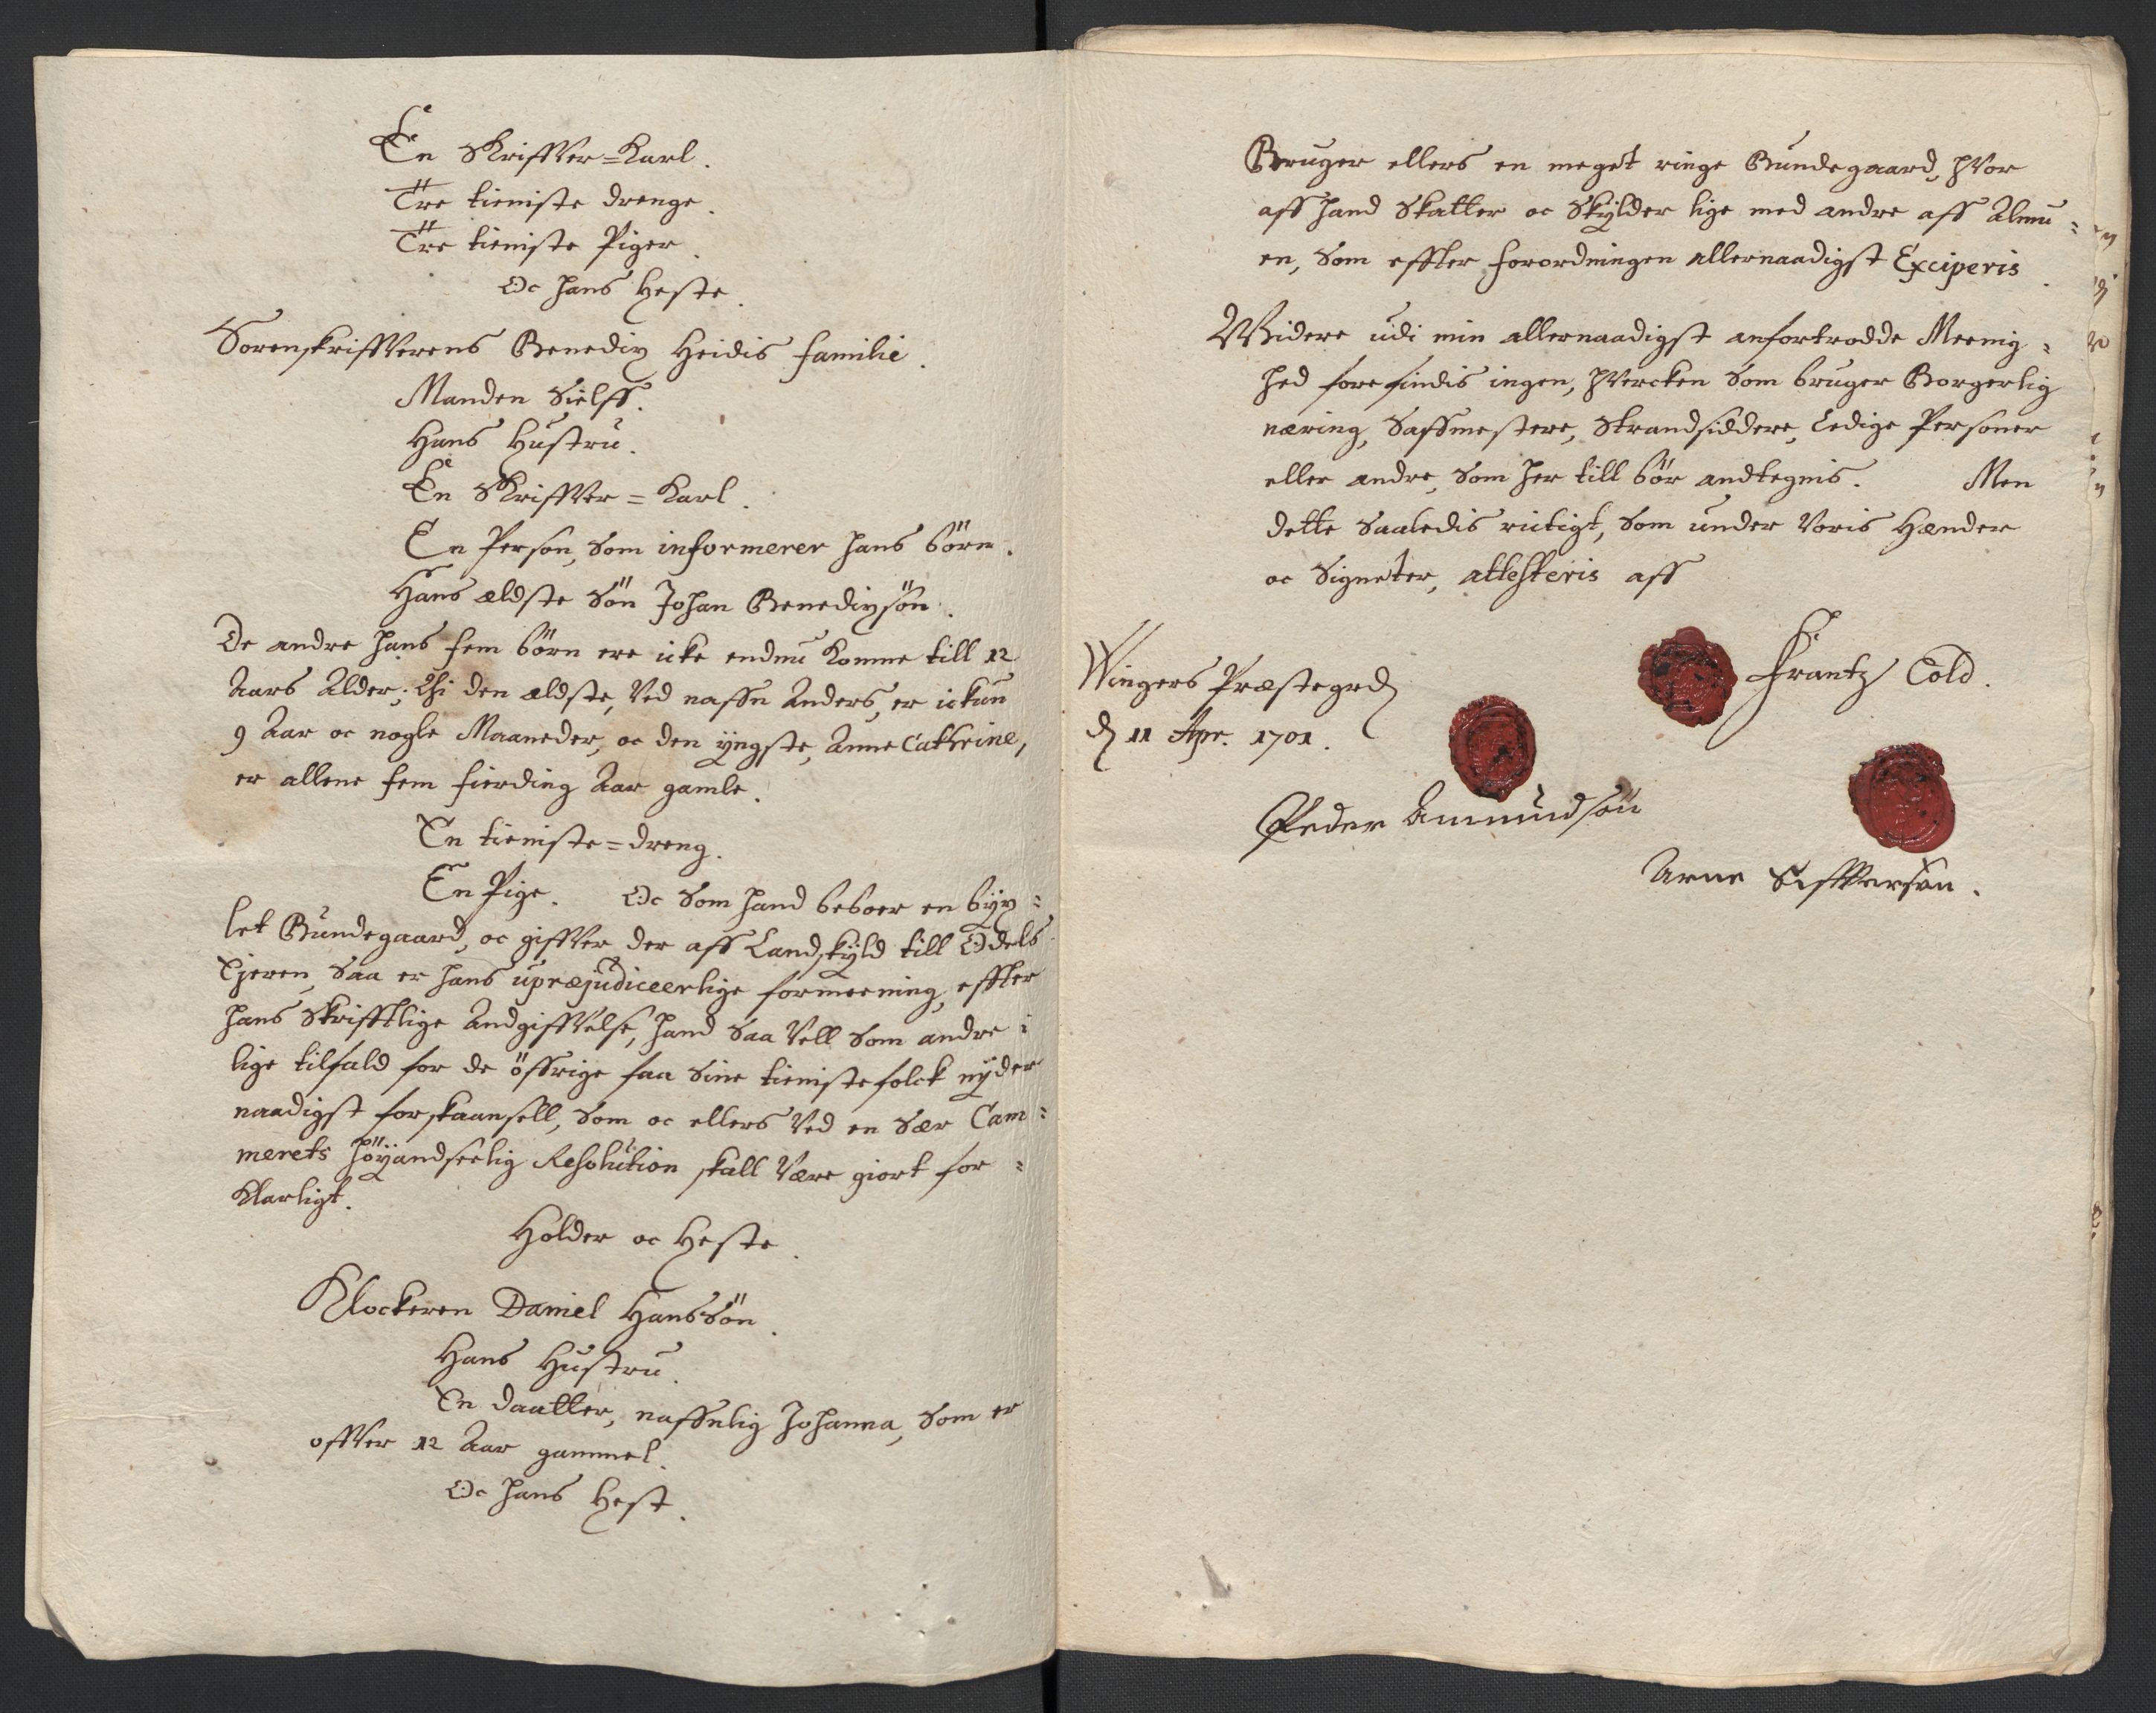 En Skriffver=Karl.
Tre tieniste drenge.
Tre tieniste Piger.
Oc hans Heste.
Sorenskriffverens Benedix Heidis familie.
Manden Sielff.
Hans Hustru.
En Skriffver=Karl.
En Person, som informerer hans börn.
Hans ældste Sön Johan Benedixsön.
De andre hans fem börn ere icke endnu komne till 12
Aars Alder; Thi den ældste, ved naffn Anders, er ickun
9 Aar oc nogle Maaneder, oc den yngste, Anne Cathrine,
er allene fem fierding Aar gamle.
En tieniste=dreng.
En Pige. Oc som hand beboer en byx=
let Bundegaard, oc giffver der aff Landskyld till Odels
Ejeren, Saa er hans upræjudiceerlige formeening, effter
hans Skrifftlige Andgiffvelse, hand saa vell som andre i
lige tilfald for de öffrige faa sine tienistefolck nyder
naadigst forskaansell, som oc ellers ved en Sær Cam=
merets höyandseelig Resolution skall være giort for=
klarligt.
Holder oc Heste.
Klockeren Daniel Hanssön.
Hans Hustru.
En daatter, naffnlig Johanna, som er
offver 12 Aar gammel.
Oc hans Hest.
Bruger ellers en meget ringe Bundegaard, hvor
aff hand Skatter oc Skylder lige med andre aff Almu=
en, som effter forordningen allernaadigst Exciperis.
Widere udi min allernaadigst anfortrodde Meenig=
hed forefindis ingen, hvercken som bruger Borgerlig
næring, Saffmestere, Strandsiddere, Ledige Personer
eller andre, som her till bör andtegnis. Men
dette saaledis rictigt, som under voris Hænder
oc Signeter, attesteris aff
Wingers Præstegrd
d 11 Apr. 1701.
Frantz Cold.
Peder Ammundsön
Arne Siffversön.